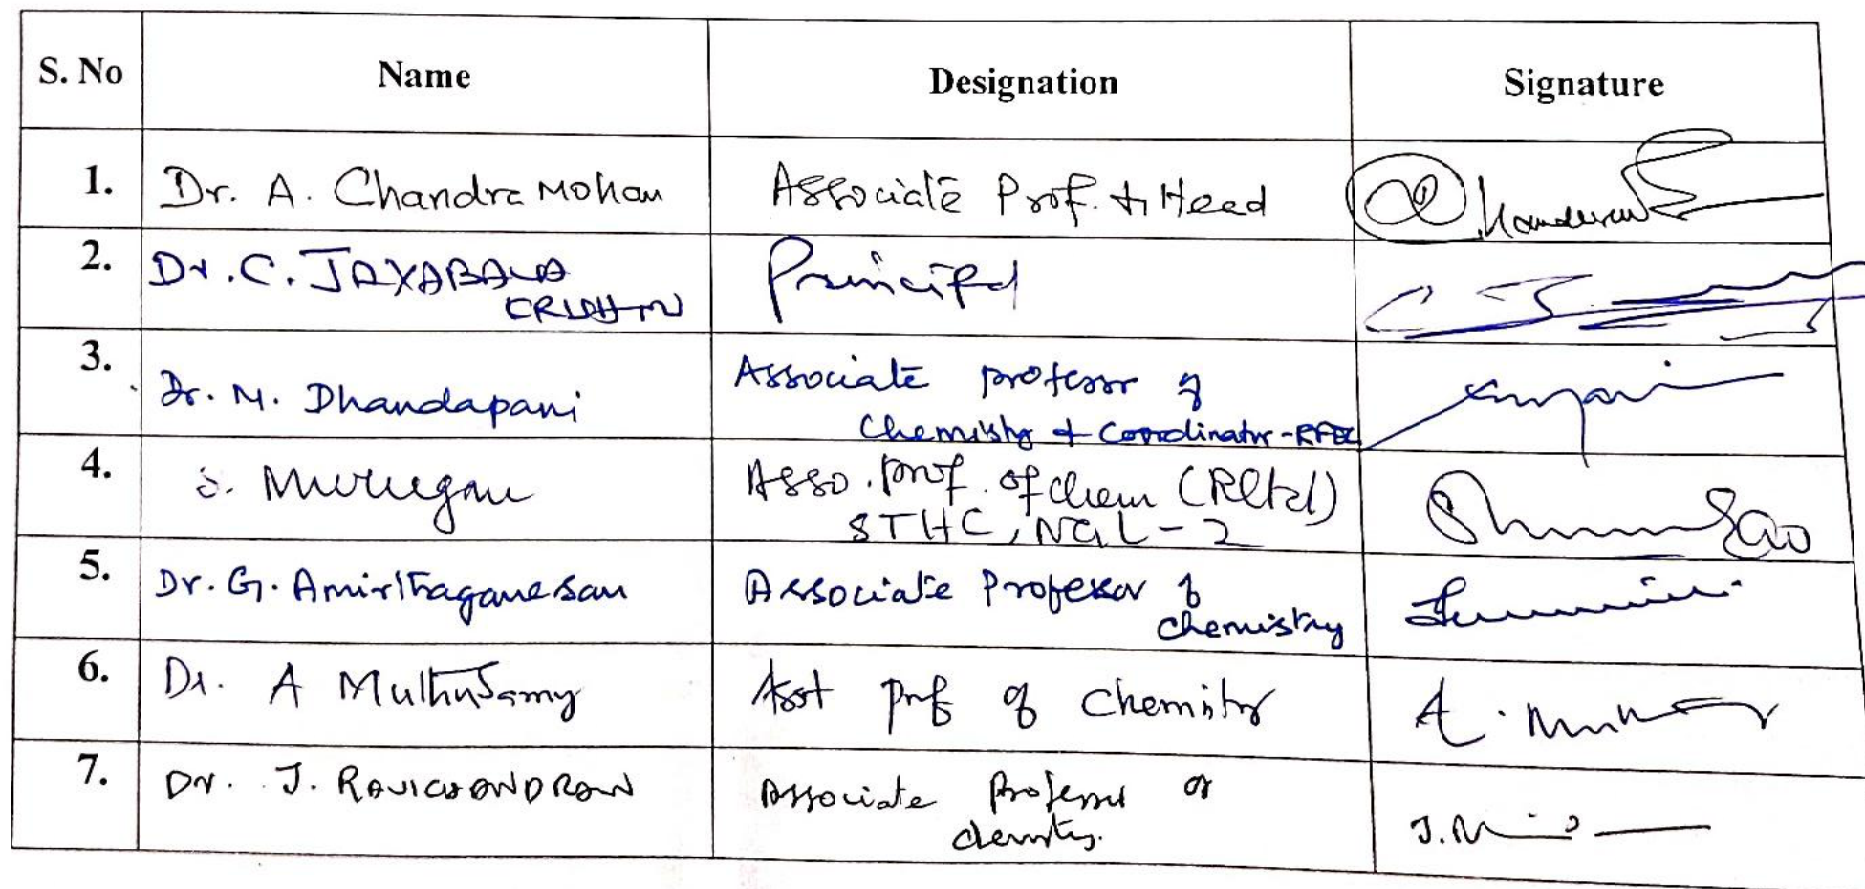 S. No Name Designation Signature
1. Dr. A. Chandra Mohan Associate Prof. & Head
2. Dr. C. JAYABALA Principal
KRISHNAN
3. Dr. M. Dhandapani Associate professor of
Chemistry & Coordinator -
4. S. Murugan Asso. prof. of chem (Retd)
STHC, NGL-2
5. Dr. G. Amirthaganesan Associate Professor of
chemistry
6. Dr. A Muthusamy Asst prof of Chemistry
7. Dr. J. RAVICHANDRAN Associate Professor of
chemistry.